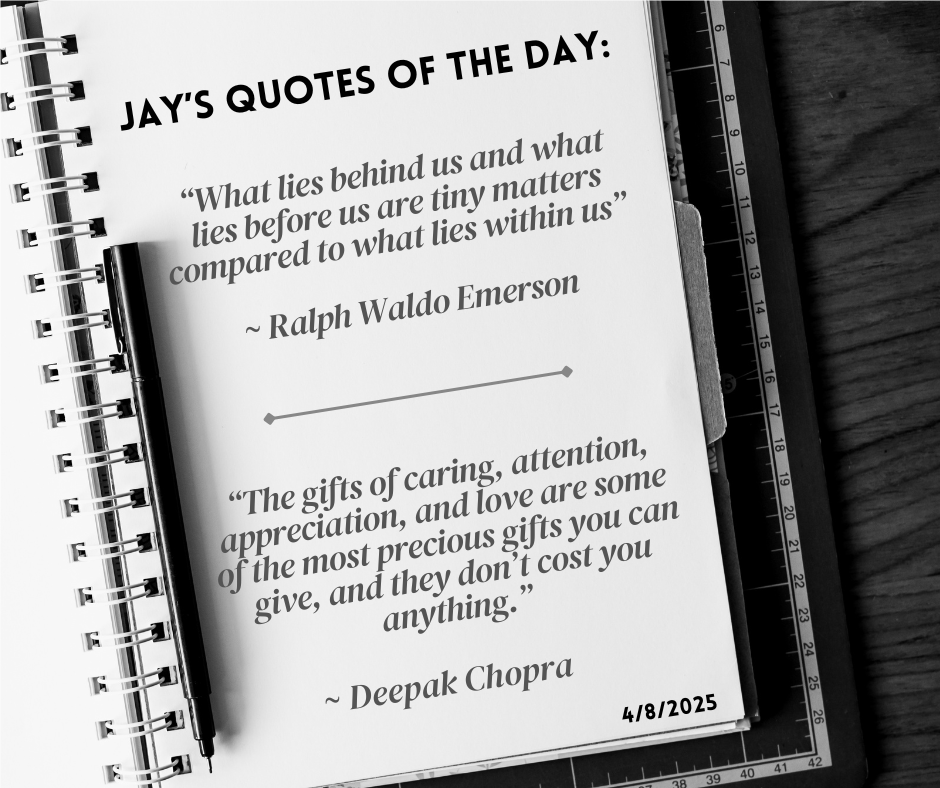 JAY'S QUOTES OF THE DAY:
“What lies behind us and what
lies before us are tiny matters
compared to what lies within us”
~ Ralph Waldo Emerson
“The gifts of caring, attention,
appreciation, and love are some
of the most precious gifts you can
give, and they don’t cost you
anything.”
~ Deepak Chopra
4/8/2025
6
7
8
9
10
11
12
13
14
15
16
17
18
19
20
21
22
23
24
25
26
37 38 39 40 41 42